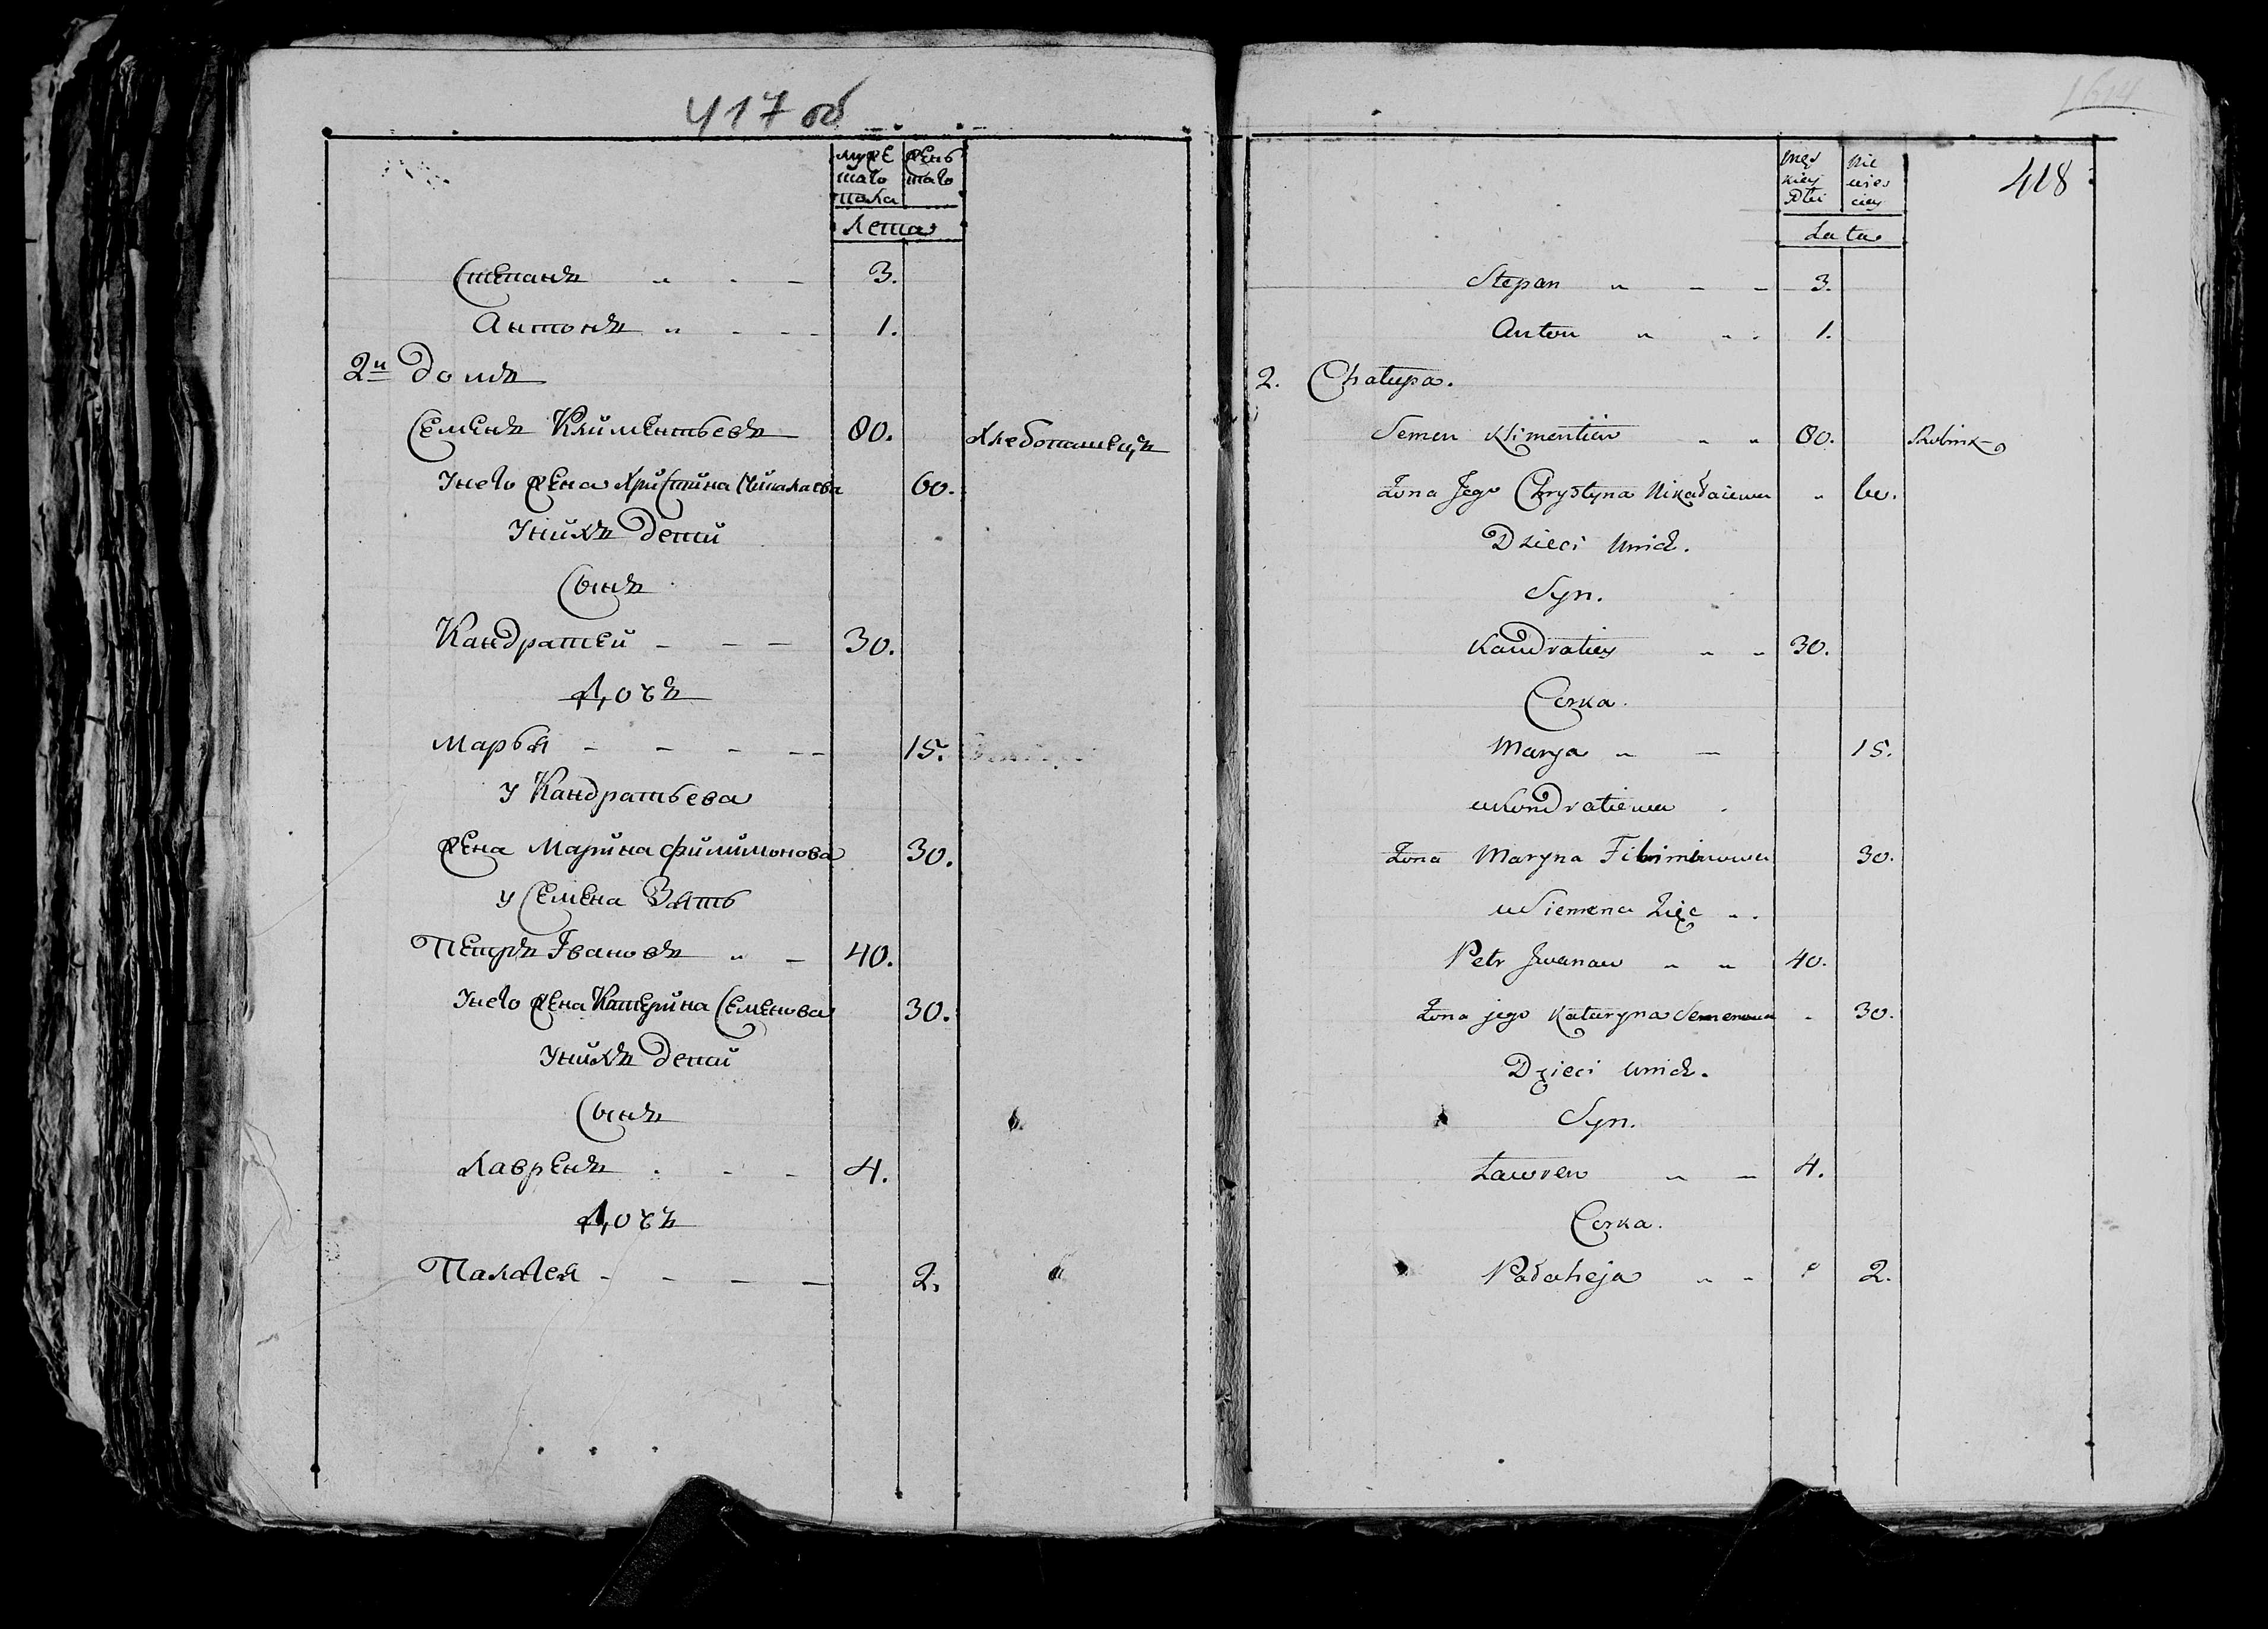 417 об
муже женъ
скаго скаго
пола
Лета
Степанъ 3.
Антонъ 1.
2й домъ
Семенъ Климентьевъ 80. Хлебопашецъ
Унего жена Христина Николаева 60.
Унихъ дети
Сынъ
Кандратей 30.
Дочъ
Марья 15.
у Кандратьева
жена Марина Филимонова 30.
у Семена Зять
Петръ Івановъ 40.
Унего жена Катерина Семенова 30.
Унихъ дети
Сынъ
Лавренъ 4.
Дочъ
Палагея 2.
418
Męs Nie
kiey wies
Płci ciey
Lata
Stepan 3.
Anton 1.
2. Chałupa.
Semen Klimentiew 80.
Żona Jego Chrystyna Nikałaiewa 60.
Dzieci unich.
Syn.
Kandratiey 30.
Corka.
Marya 15.
u Kondratiewa
Żona Maryna Filimionowa 30.
u Siemena Zięć
Petr Jwanaw 40.
Żona jego Kataryna Semenowa 30.
Dzieci unich.
Syn.
Ławren 4.
Corka.
Pałaheja 2.